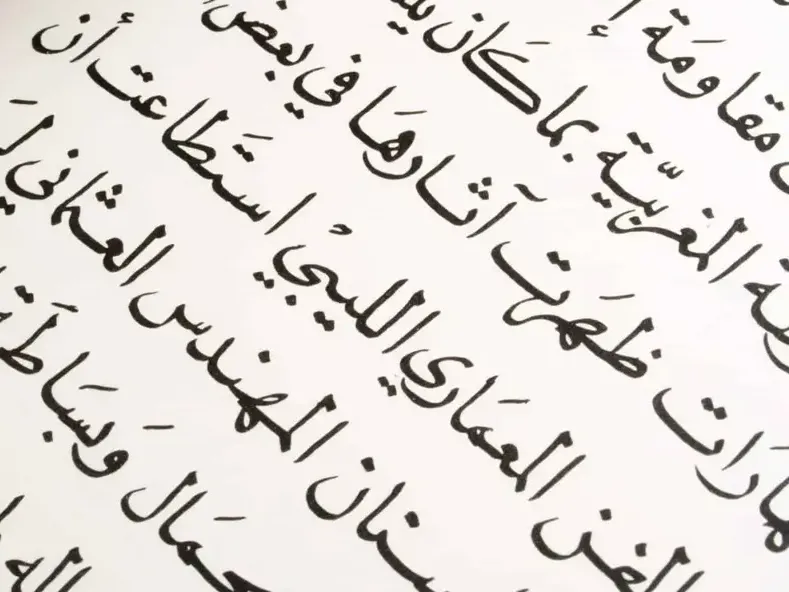 مقاومَة
المغربيّة بما كَان
ظهَرت آثارهَا في بعض
الفن المعمَاري الليبيْ استَطاعت أن
سنان المهندس العثماني
وَبسَاطَة